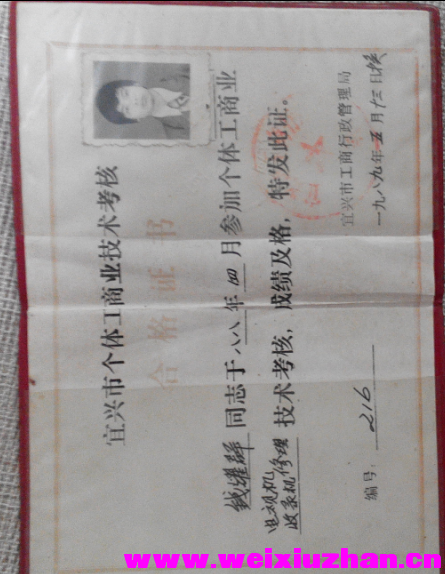 宜兴市个体工商业技术考核
合格证书
钱耀群同志于八八年四月参加个体工商业
电视机
收录机修理技术考核，成绩及格，特发此证。
宜兴市工商行政管理局
一九八九年五月十三日换
编号：216
www.weixiuzhan.cn